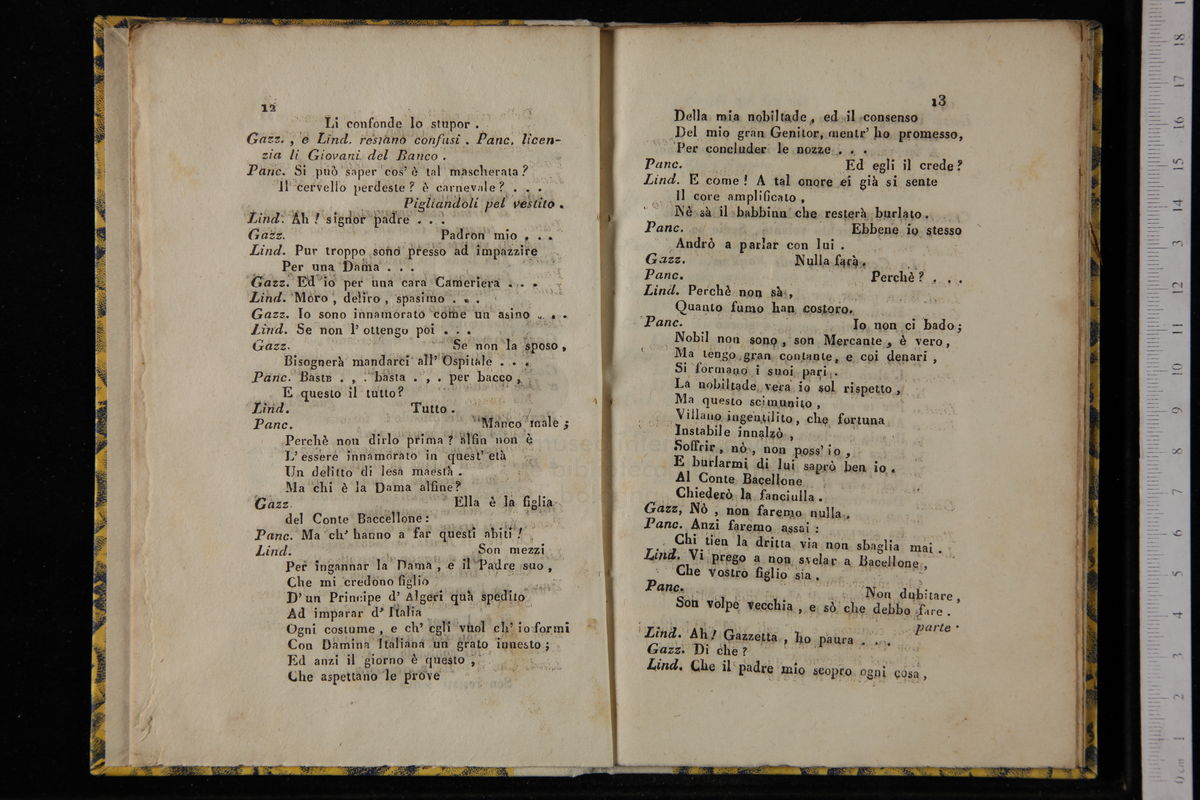 12
Li confonde lo stupor .
Gazz. , e Lind. restano confusi . Panc. licen-
zia li Giovani del Banco .
Panc. Si può saper cos' è tal mascherata ?
Il cervello perdeste ? è carnevale ? . . .
Pigliandoli pel vestito .
Lind. Ah ! signor padre . . .
Gazz. Padron mio . . .
Lind. Pur troppo sono presso ad impazzire
Per una Dama . . .
Gazz. Ed io per una cara Cameriera . . .
Lind. Moro , deliro , spasimo . . .
Gazz. Io sono innamorato come un asino . . .
Lind. Se non l' ottengo poi . . .
Gazz. Se non la sposo ,
Bisognerà mandarci all' Ospitale . . .
Panc. Basta . , . basta . , . per bacco ,
E questo il tutto ?
Lind. Tutto .
Panc. Manco male ;
Perchè non dirlo prima ? alfin non è
L' essere innamorato in quest' età
Un delitto di lesa maestà .
Ma chi è la Dama alfine ?
Gazz. Ella è la figlia
del Conte Baccellone :
Panc. Ma ch' hanno a far questi abiti !
Lind. Son mezzi
Per ingannar la Dama , e il Padre suo ,
Che mi credono figlio
D' un Principe d' Algeri quà spedito
Ad imparar d' Italia
Ogni costume , e ch' egli vuol ch' io formi
Con Damina Italiana un grato innesto ;
Ed anzi il giorno è questo ,
Che aspettano le prove
13
Della mia nobiltade , ed il consenso
Del mio gran Genitor, mentr' ho promesso,
Per concluder le nozze . . .
Panc. Ed egli il crede ?
Lind. E come ! A tal onore ei già si sente
Il core amplificato ,
Nè sà il babbinu che resterà burlato .
Panc. Ebbene io stesso
Andrò a parlar con lui .
Gazz. Nulla farà .
Panc. Perchè ? . . .
Lind. Perchè non sà ,
Quanto fumo han costoro.
Panc. Io non ci bado ;
Nobil non sono , son Mercante , è vero,
Ma tengo gran contante, e coi denari ,
Si formano i suoi pari .
La nobiltade vera io sol rispetto ,
Ma questo scimunito ,
Villano ingentilito , che fortuna
Instabile innalzò ,
Soffrir , nò , non poss' io ,
E burlarmi di lui saprò ben io .
Al Conte Bacellone
Chiederò la fanciulla .
Gazz, Nò , non faremo nulla .
Panc. Anzi faremo assai :
Chi tien la dritta via non sbaglia mai .
Lind. Vi prego a non svelar a Bacellone ,
Che vostro figlio sia .
Panc. Non dubitare ,
Son volpe vecchia , e sò che debbo fare .
parte .
Lind. Ah ! Gazzetta , ho paura . . .
Gazz. Di che ?
Lind. Che il padre mio scopro ogni cosa ,